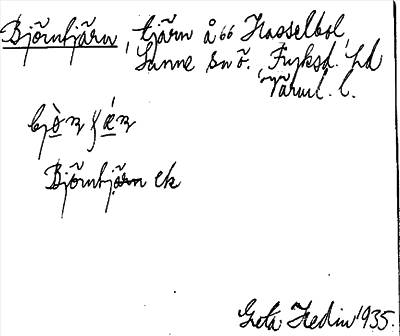 Björntjärn, tjärn å 66 Hasselbol,
Sunne sn Ö. Fryksd. hd
Värml. l.
Björntjärn ek
Greta Hedin 1935.